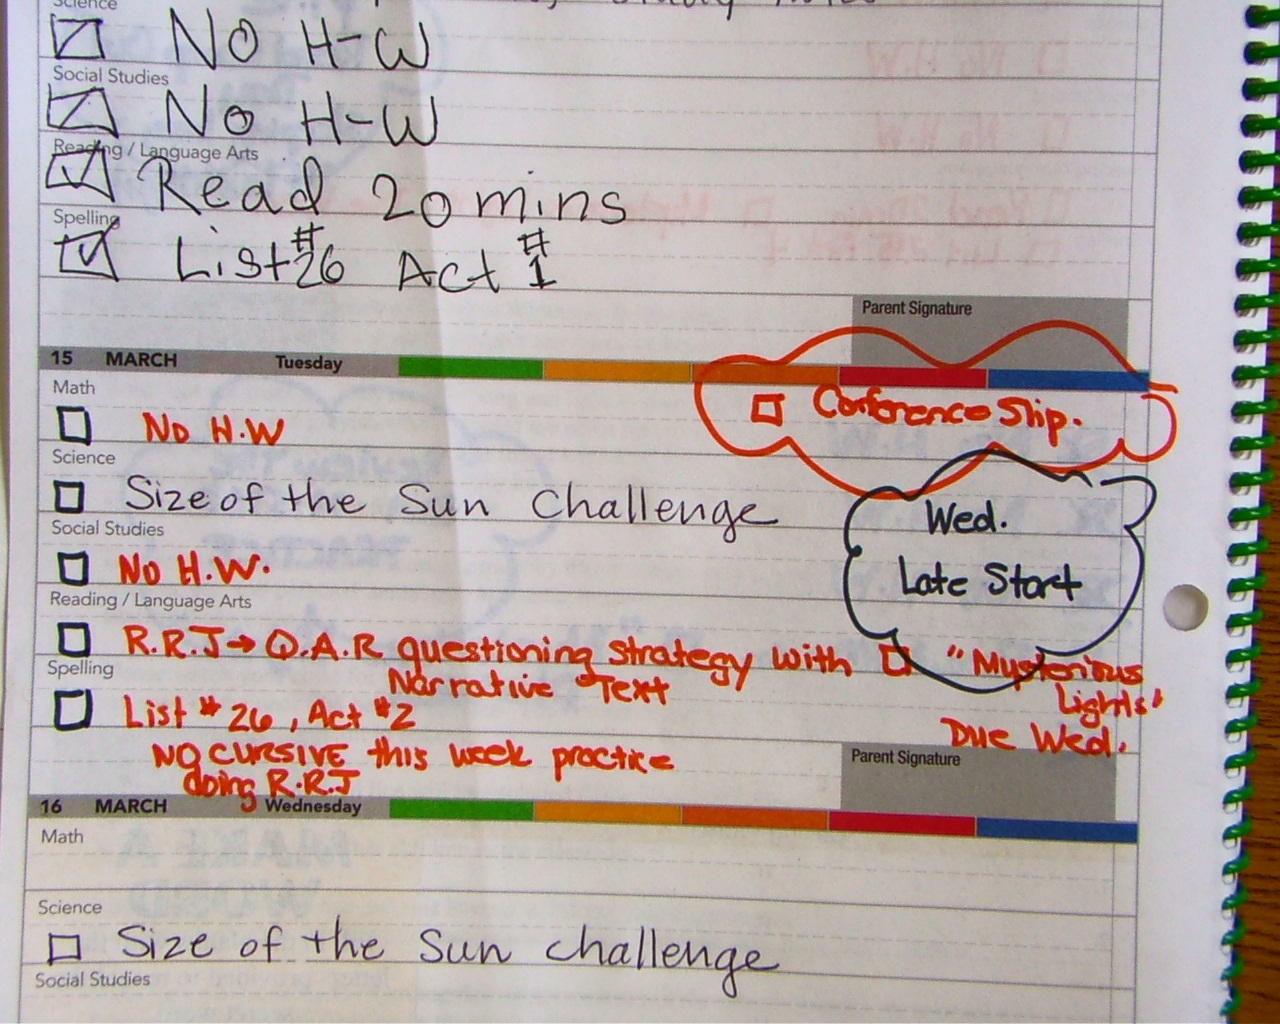 Science
No H-W
Social Studies
No H-W
Reading / Language Arts
Read 20 mins
Spelling
List #26 Act #1
Parent Signature
15 MARCH Tuesday
Math
No H.W
Conference Slip.
Science
Size of the Sun Challenge
Wed.
Late Start
Social Studies
No H.W.
Reading / Language Arts
R.R.J → Q.A.R questioning strategy with
Narrative Text
"Mysterious
Lights'
Due Wed.
Spelling
List #26, Act #2
NO CURSIVE this week practice
doing R.R.J
Parent Signature
16 MARCH Wednesday
Math
Science
Size of the Sun challenge
Social Studies